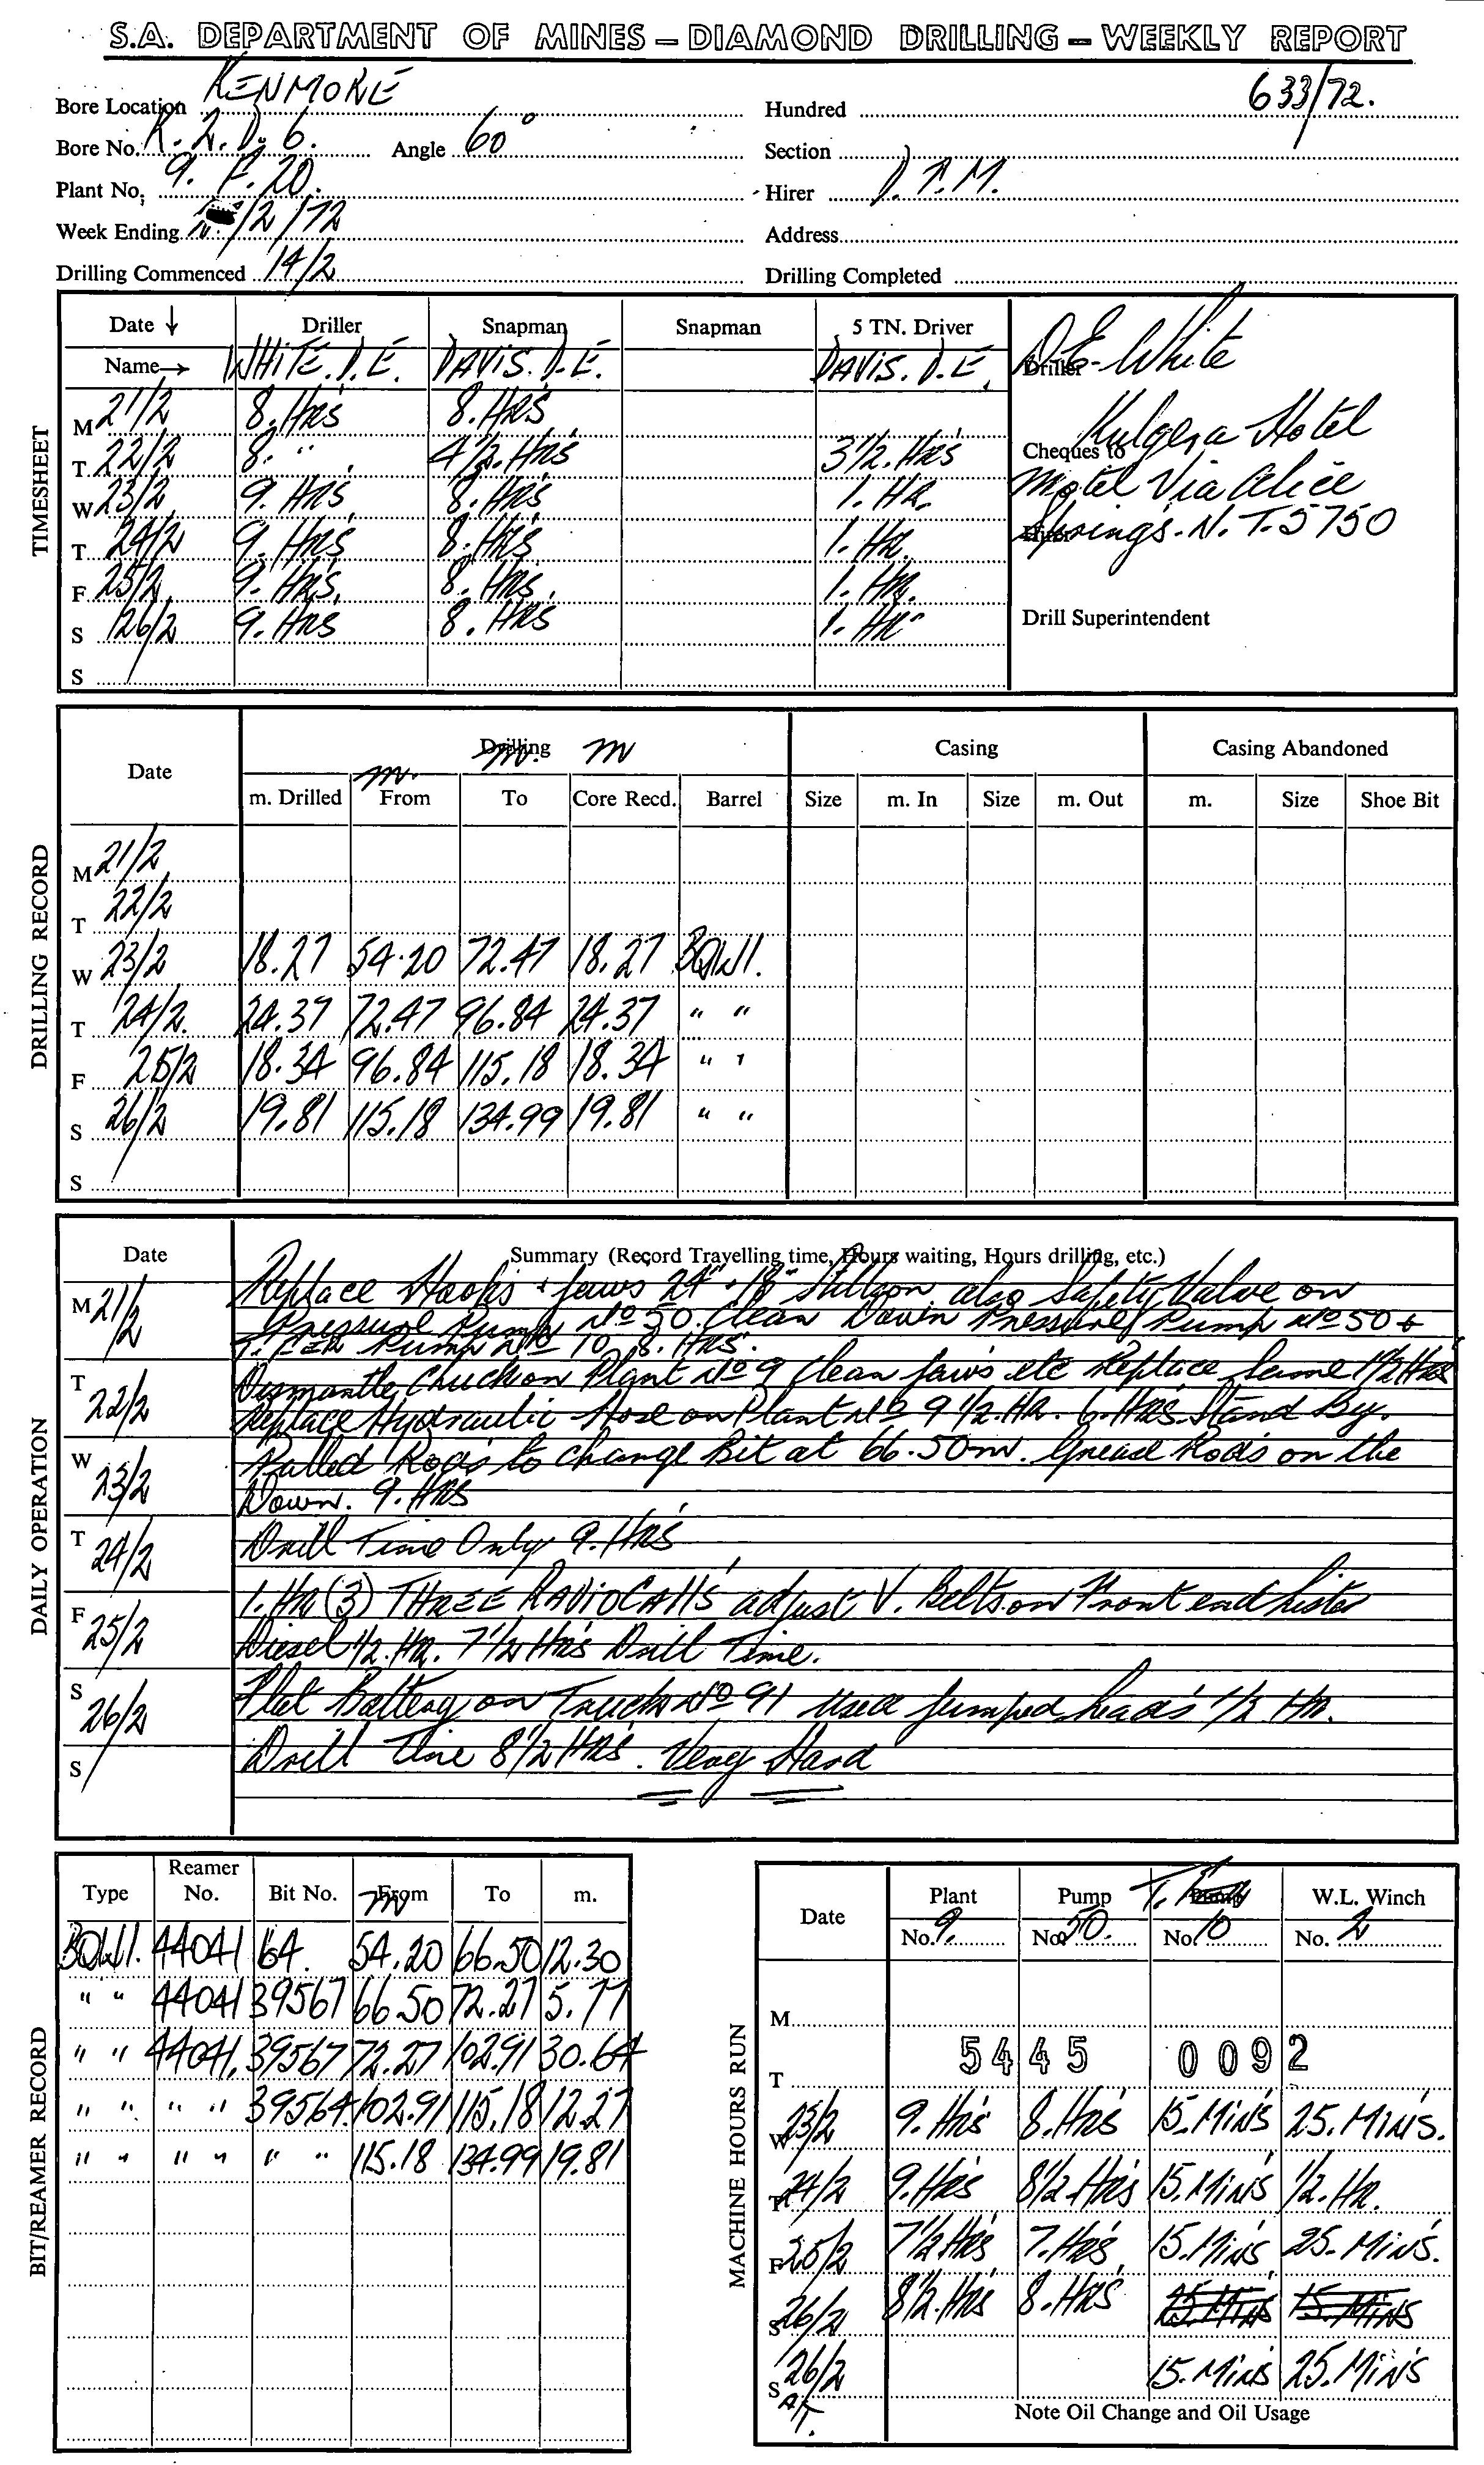 S.A. DEPARTMENT OF MINES – DIAMOND DRILLING – WEEKLY REPORT
633/72.
Bore Location KENMORE Hundred
Bore No. K. 2. D. 6. Angle 60° Section
Plant No. 9. F. 20. Hirer D. T. M.
Week Ending /2/72 Address
Drilling Commenced 14/2 Drilling Completed
TIMESHEET
Date ↓ Driller Snapman Snapman 5 TN. Driver
Name→ WHITE. D.E. DAVIS. D.E. DAVIS. D.E.
M 21/2 8. HRS 8. HRS
T 22/2 8. " 4 1/2. HRS 3 1/2. HRS
W 23/2 9. HRS 8. HRS 1. HR.
T 24/2 9. HRS 8. HRS 1. HR.
F 25/2 9. HRS. 8. HRS. 1. HR.
S 26/2 9. HRS 8. HRS 1. HR
S
D.E. White
Driller
Cheques to Kulgera Hotel
Motel Via Alice
Springs. N.T. 5750
Drill Superintendent
DRILLING RECORD
Date Drilling m. m Casing Casing Abandoned
m. Drilled m. From To Core Recd. Barrel Size m. In Size m. Out m. Size Shoe Bit
M 21/2
T 22/2
W 23/2 18.27 54.20 72.47 18.27 BQWl.
T 24/2. 24.37 72.47 96.84 24.37 " "
F 25/2 18.34 96.84 115.18 18.34 " "
S 26/2 19.81 115.18 134.99 19.81 " "
S
DAILY OPERATION
Date Summary (Record Travelling time, Hours waiting, Hours drilling, etc.)
M 21/2 Replace Hooks + Jaws 24" + 18" Stillson. also Safety Valve on
Pressure Pump No 50. Clean Down Pressure Pump No 50 +
Pump No 10. 8. HRS.
T 22/2 Dismantle Chuck on Plant No 9 Clean Jaws etc Replace Same 1 1/2 HRS
Replace Hydraulic Hose on Plant No 9 1/2. HR. 6. HRS Stand By.
W 23/2 Pulled Rods to Change Bit at 66.50m. Grease Rods on the
Down. 9. HRS
T 24/2 Drill Time Only 9. HRS
F 25/2 1. HR (3) THREE RADIO CALLS adjust V. Belts on Front end Lister
Diesel 1/2. HR. 7 1/2 HRS Drill Time.
S 26/2 Flat Battery on Truck No 91 Used Jumped leads 1/2 HR.
S Drill Time 8 1/2 HRS. Very Hard
BIT/REAMER RECORD
Type Reamer No. Bit No. m From To m.
BQWl. 44041 64. 54.20 66.50 12.30
" " 44041 39567 66.50 72.27 5.77
" " 44041. 39567 72.27 102.91 30.64
" " " " 39564. 102.91 115.18 12.27
" " " " " " 115.18 134.99 19.81
MACHINE HOURS RUN
Date Plant Pump T. W.L. Winch
No. 9. No. 50. No. 10 No. 2
M
T 5445 0092
W 23/2 9. HRS 8. HRS 15. MINS 25. MINS.
T 24/2 9. HRS 8 1/2 HRS 15. MINS 1/2. HR.
F 25/2 7 1/2 HRS 7. HRS 15. MINS 25. MINS.
S 26/2 8 1/2. HRS 8. HRS 25 MINS 15. MINS
S 26/2 15. MINS 25. MINS
Note Oil Change and Oil Usage